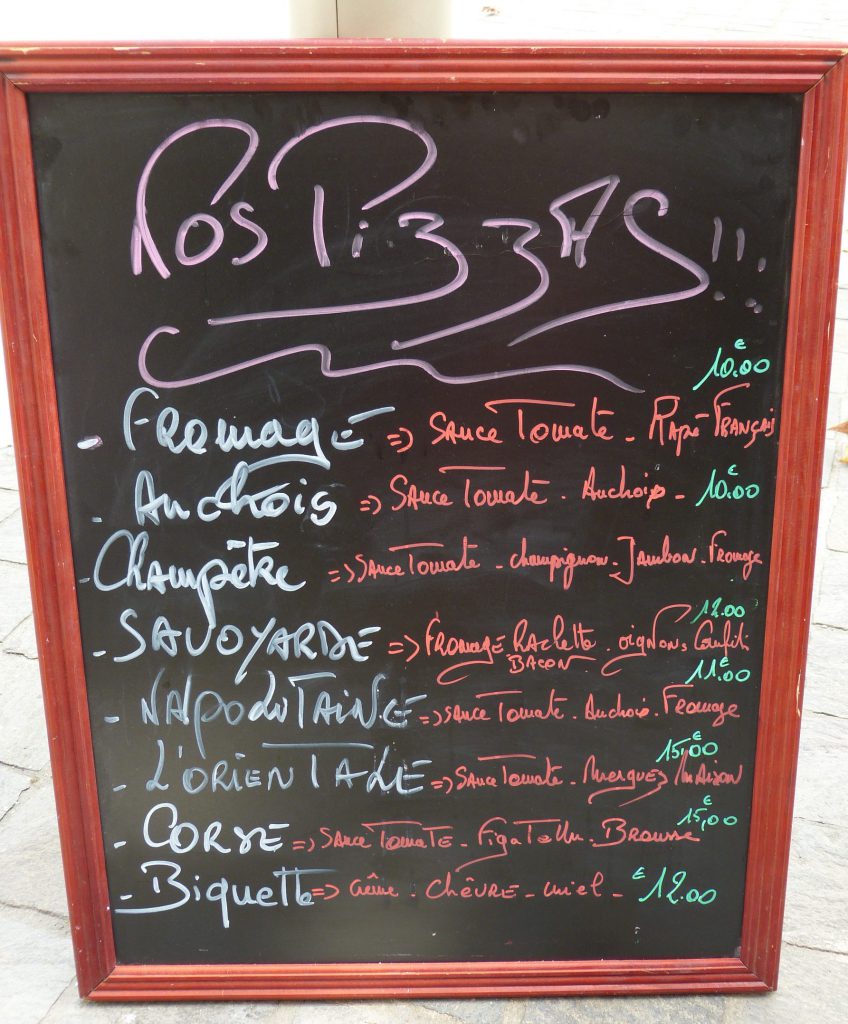 Nos Pizzas !!!
10.00 €
- Fromage => Sauce Tomate - Rapé Français
- Anchois => Sauce Tomate - Anchois - 10.00 €
- Champêtre => Sauce Tomate - champignon - Jambon - Fromage
12.00
- SAVOYARDE => Fromage Raclette - oignons Confit
BACON
11.00 €
- NAPOLITAINE => Sauce Tomate - Anchois - Fromage
15,00 €
- L'ORIENTALE => Sauce Tomate - Merguez Maison
15,00 €
- CORSE => Sauce Tomate - Figatellu - Brousse
- Biquette => Crême - CHÊVRE - miel - € 12.00